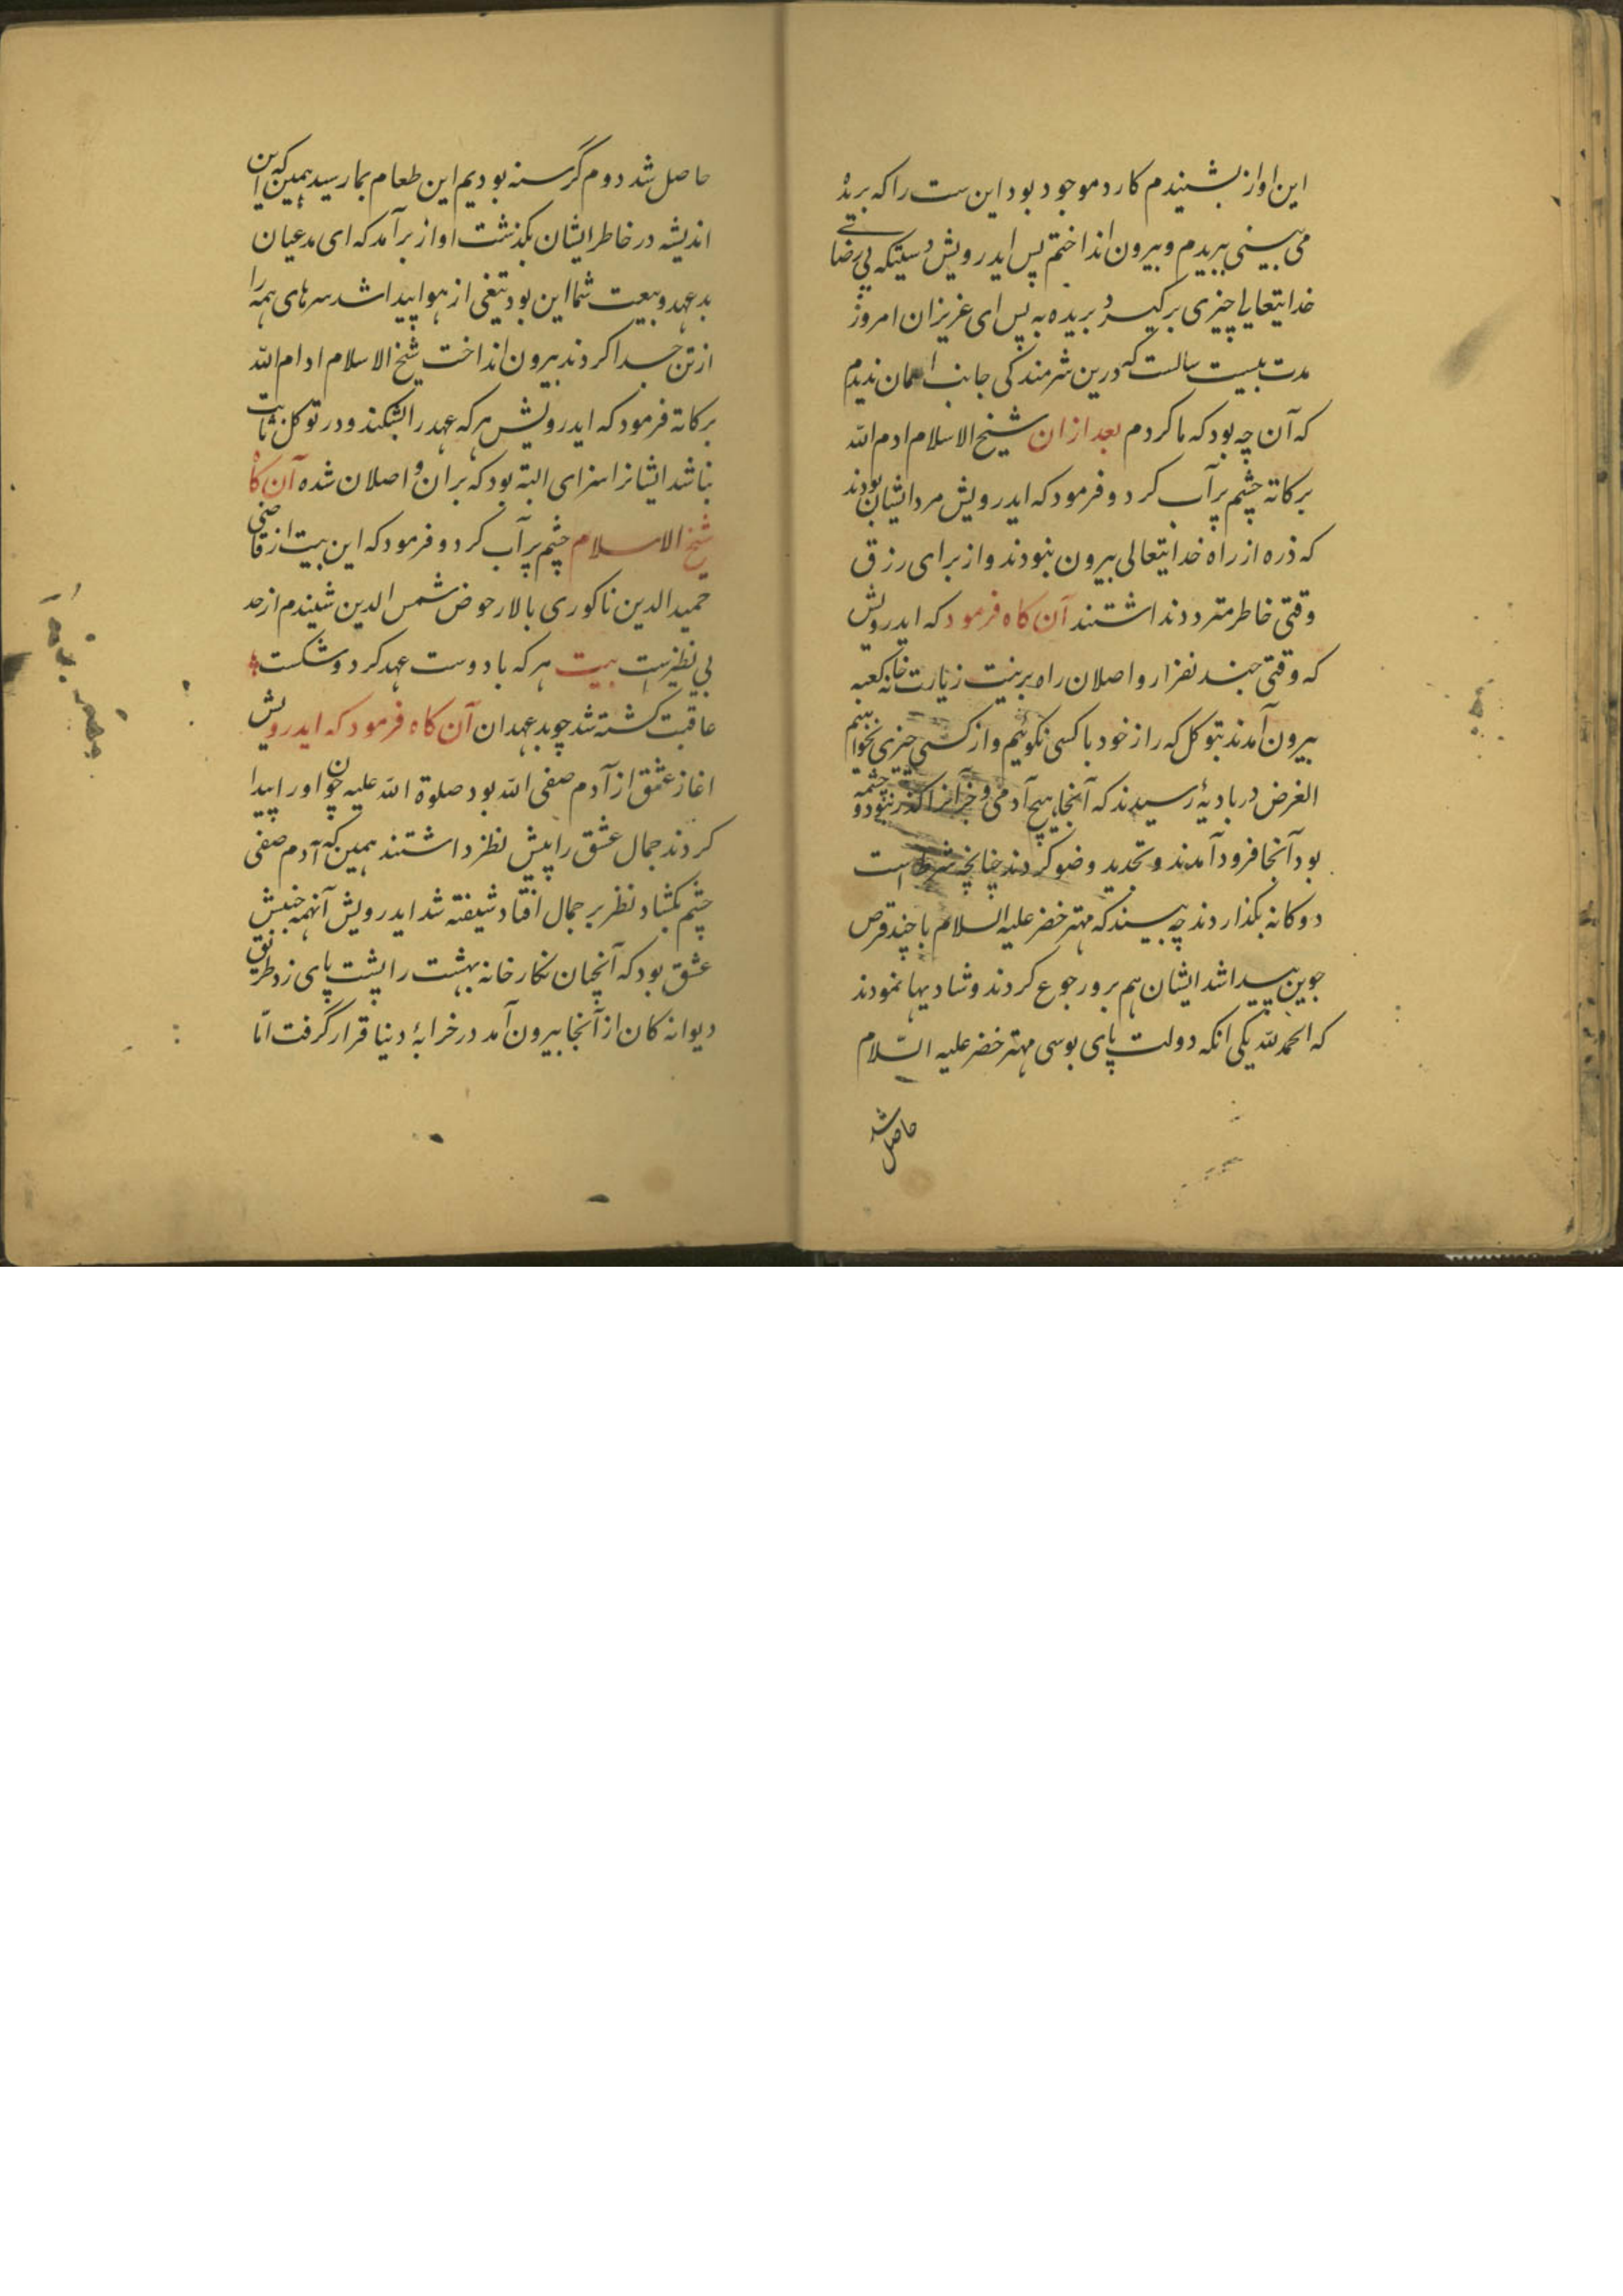 این اواز بشنیدم کارد موجود بود این ست را که بریده
می بینی ببریدم و بیرون انداختم پس ایدرویش دستیکه بی رضائے
خدایتعالی چیزی برگیرد بریده به پس ای عزیزان امروز
مدت بیست سالست که درین شرمندگی جانب اسمان ندیدم
که آن چه بود که ما کردم بعد ازان شیخ الاسلام ادم الله
برکاته چشم پرآب کرد و فرمود که ایدرویش مرد ایشان بودند
که ذره از راه خدایتعالی بیرون نبودند و از برای رزق
وقتی خاطر متردد نداشتند آن کاه فرمود که ایدرویش
که وقتی چند نفر از واصلان راه برنیت زیارت خانه کعبه
بیرون آمدند بتوکل که راز خود با کسی نکوئیم و از کسی چیزی نخواهیم
الغرض در بادیۀ رسیدند که آنجا هیچ آدمی و جز آنرا گذر نبود و چشمه
بود آنجا فرود آمدند و تجدید وضو کردند چنانچه شرط است
دوکانه بکذاردند چه بینند که مهتر خضر علیه السلام با چند قرص
جوین پیدا شد ایشان هم برو رجوع کردند و شادیها نمودند
که الحمدلله یکی انکه دولت پای بوسی مهتر خضر علیه السّلام
حاصل شد
حاصل شد دوم گرسنه بودیم این طعام بمارسید همین که این
اندیشه در خاطر ایشان بکذشت اواز برآمد که ای مدعیان
بدعهد و بیعت شما این بود تیغی از هوا پیدا شد سرهای همه را
از تن جدا کردند بیرون انداخت شیخ الاسلام ادام الله
برکاته فرمود که ایدرویش هر که عهد را بشکند و در توکل ثابت
نباشد ایشانرا سزای البته بود که بران واصلان شده آن کاه
شیخ الاسلام چشم پرآب کرد و فرمود که این بیت از قاضی
حمید الدین ناکوری بالار حوض شمس الدین شنیدم از حد
بی نظیرست بیت هر که با دوست عهد کرد و شکست
عاقبت کشته شد چو بدعهدان آن کاه فرمود که ایدرویش
اغاز عشق از آدم صفی الله بود صلوة الله علیه چون او را پیدا
کردند جمال عشق را پیش نظر داشتند همین که آدم صفی
چشم بکشاد نظر بر جمال افتاد شیفته شد ایدرویش آنهمه جنبش
عشق بود که آنچنان نکارخانه بهشت را پشت پای زد طریق
دیوانه کان از آنجا بیرون آمد در خرابۀ دنیا قرار گرفت امّا